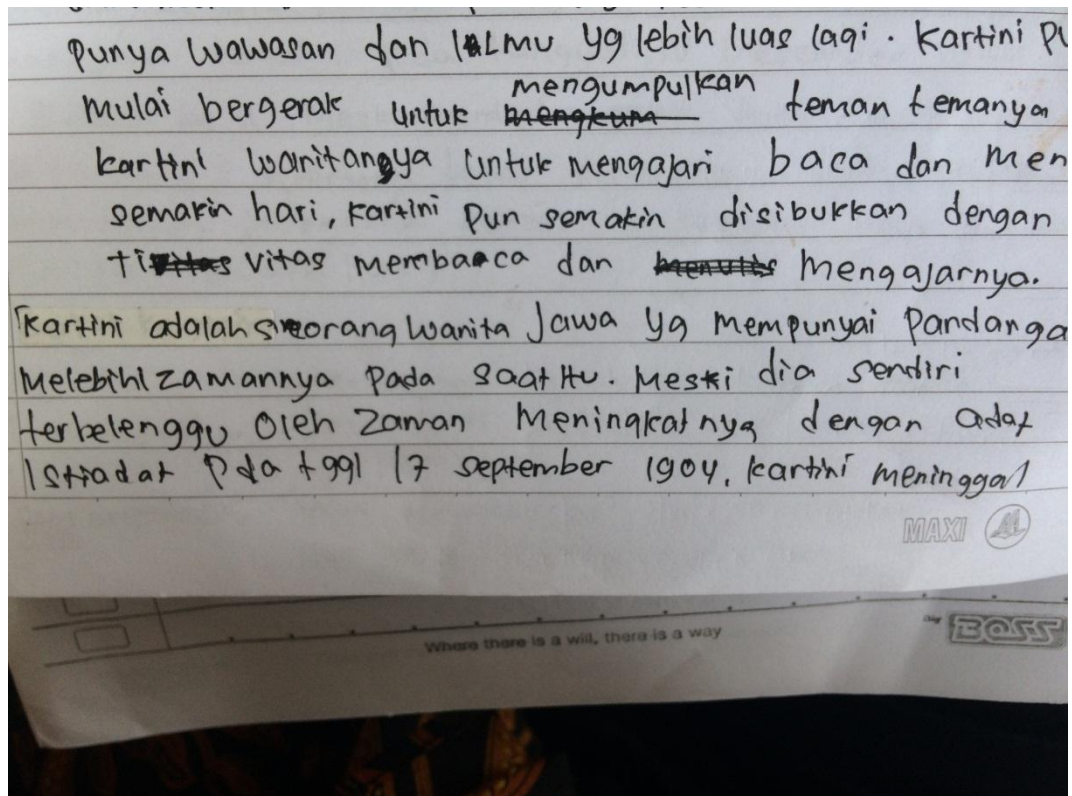 punya wawasan dan ilmu yg lebih luas lagi. Kartini pu
mulai bergerak untuk mengumpulkan teman temanya
kartini wanitanya untuk mengajari baca dan men
semakin hari, kartini pun semakin disibukkan dengan
ti vitas membaca dan mengajarnya.
Kartini adalah seorang wanita Jawa yg mempunyai Pandanga
Melebihi zamannya pada saat itu. Meski dia sendiri
terbelenggu oleh zaman Meningkatnya dengan adat
Istiadat Pda tggl 17 september 1904, kartini meninggal
MAXI
Where there is a will, there is a way
By BOSS